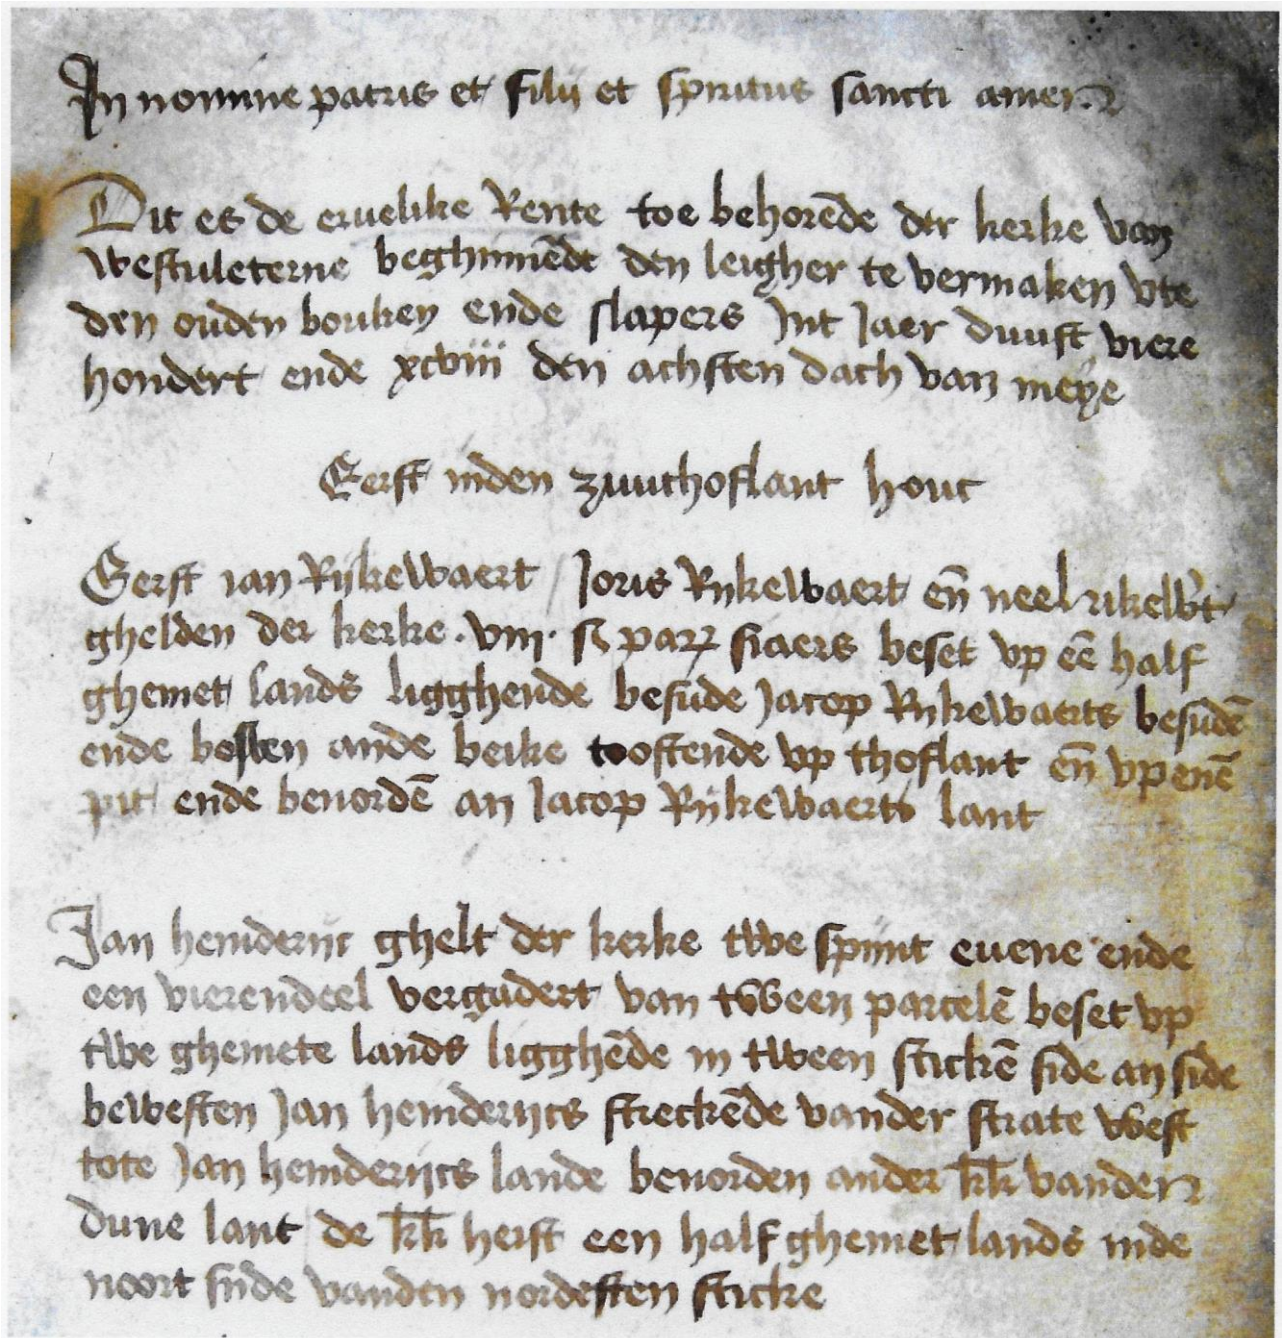 In nomine patris et filij et spiritus sancti amen
Dit es de eruelike Rente toe behorēde der kerke van
westuleterne beghinnēde den leigher te vermaken vte
den ouden bouken ende slapers Int Jaer duust viere
hondert ende xcviii den achsten dach van meye
Eerst inden zuuthoflant hout
Eerst ian Rijkewaert Joris Rijkewaert eñ neel
ghelden der kerke viij ß par siaers beset vp eē half
ghemet lands ligghende besude Jacop Rijkewaerts besudē
ende ande beike oostende vp thoflant eñ vp enē
pit ende benordē an Jacop Rijkewaerts lant
Jan heinderijc ghelt der kerke twe spiint euene ende
een vierendeel vergadert van tween parcelē beset vp
twe ghemete lands ligghēde in tween stickē side an side
bewesten Jan heinderijcs streckēde vander strate west
tote Jan heinderijcs lande benorden ander kk vander
dune lant de kk heift een half ghemet lands inde
noort side vanden nordesten sticke